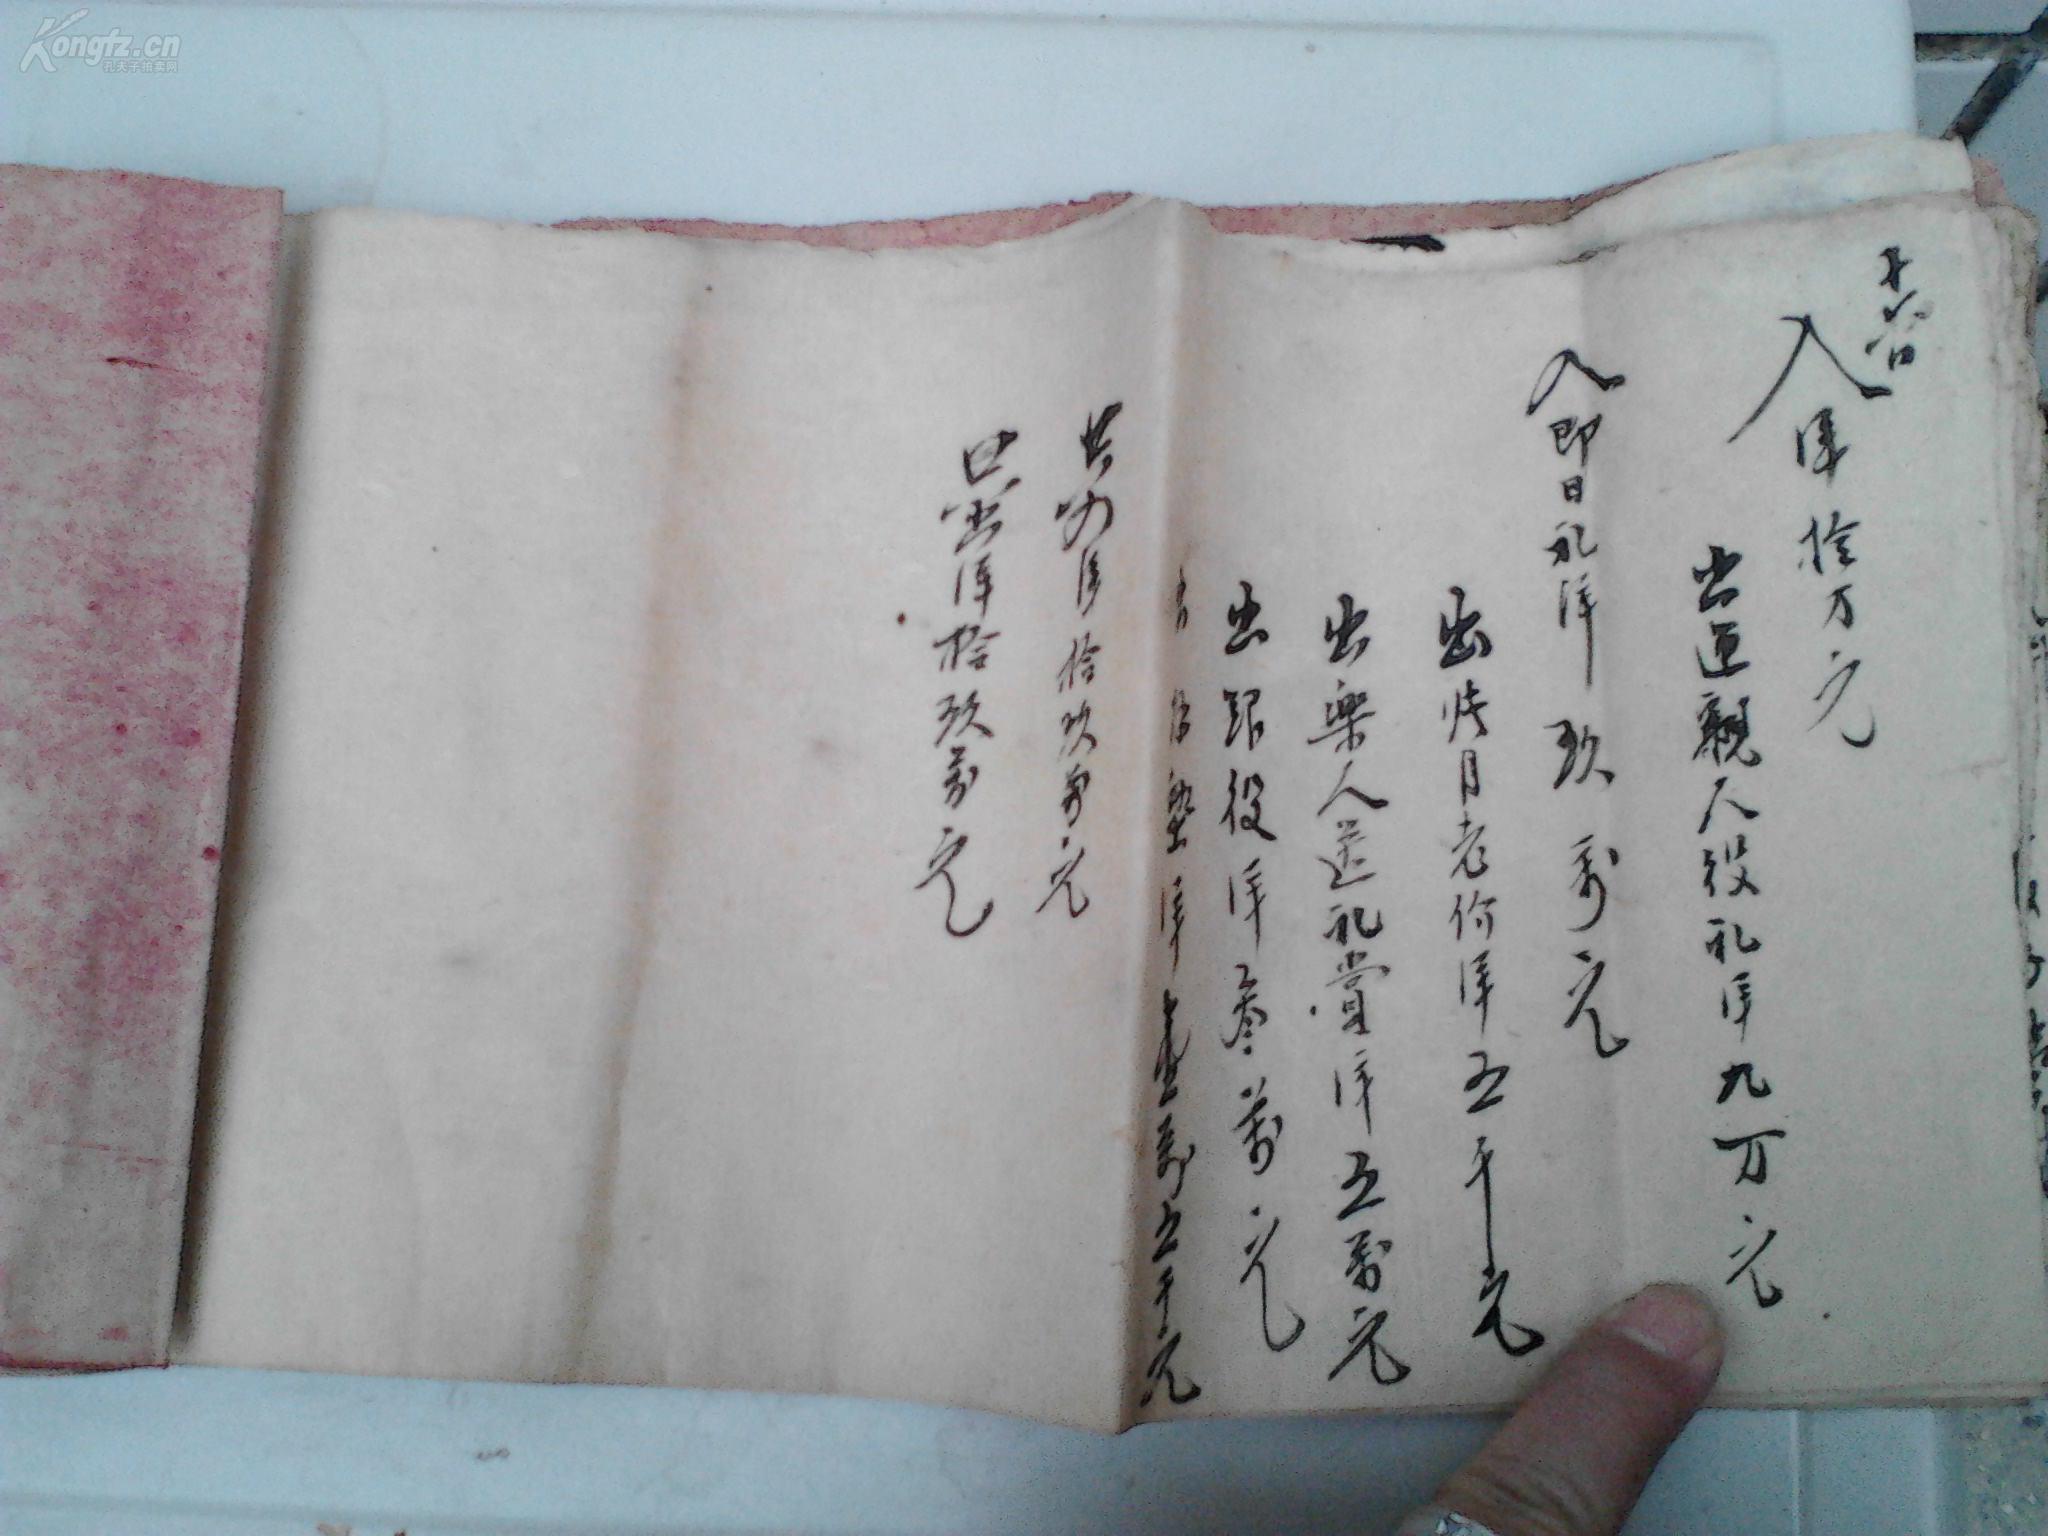 十六日
入洋拾万元
出迎親人役礼洋九万元
入即日礼洋玖萬元
出 月老 洋五千元
出樂人送礼賞洋五萬元
出跟役洋叁萬元
墊洋壹萬五千元
共 洋拾玖萬元
共出洋拾玖萬元
Kongfz.cn
孔夫子拍卖网